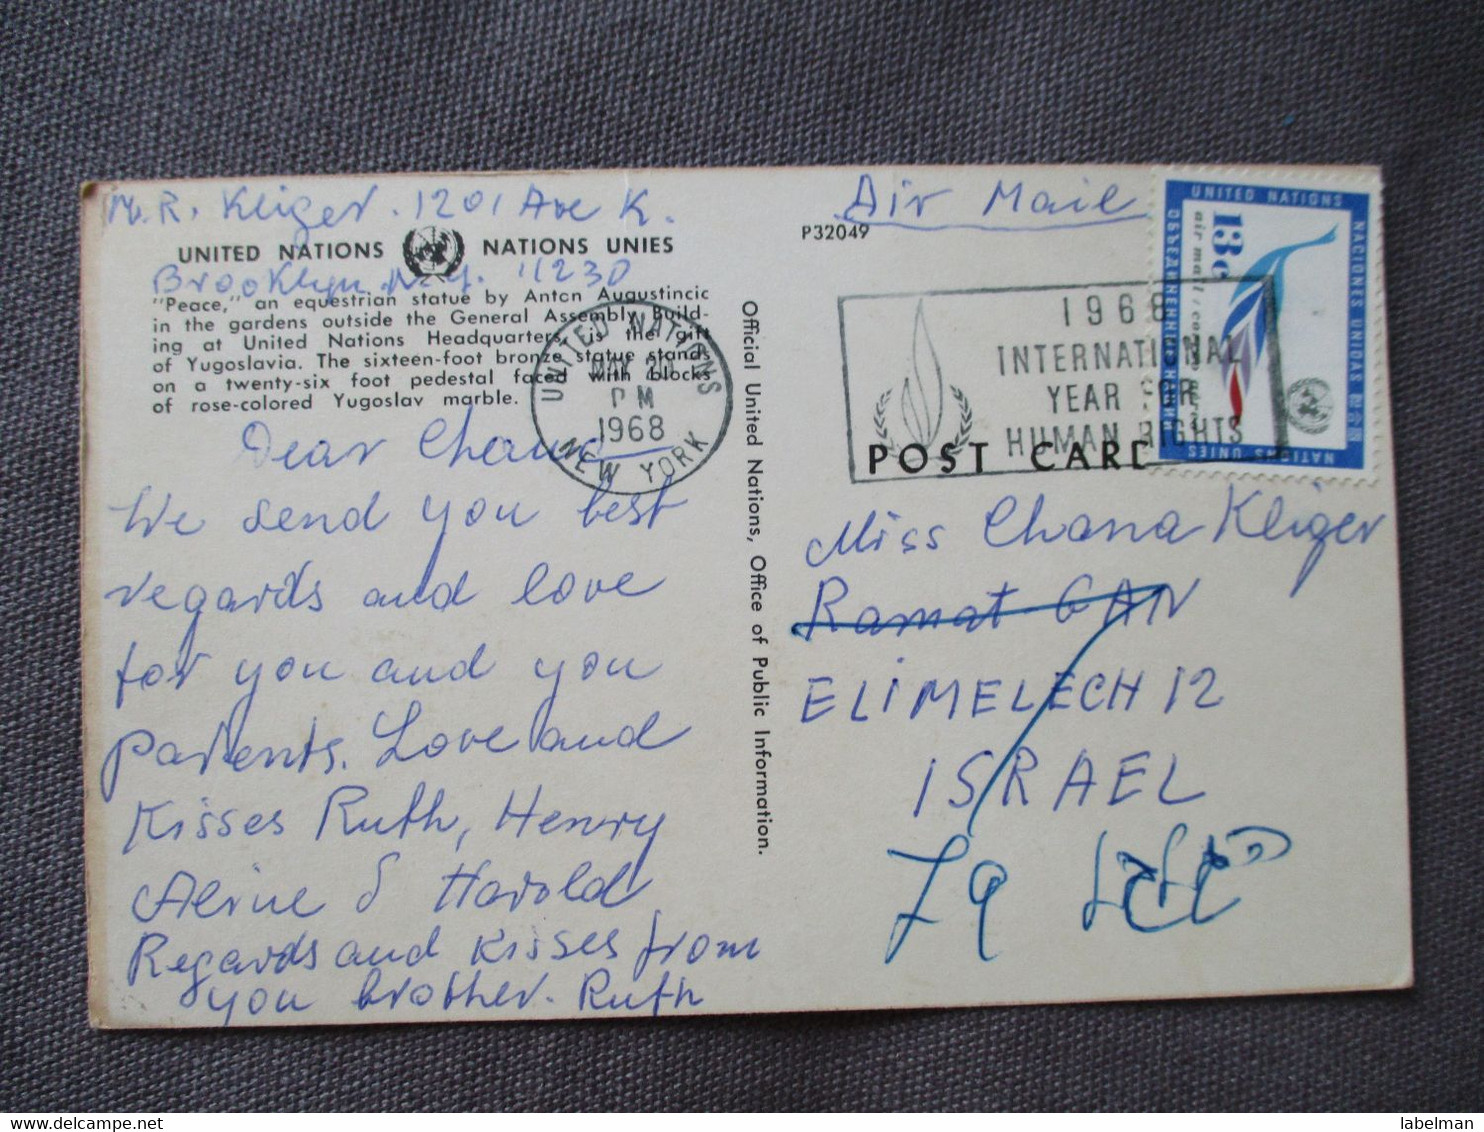 M. R. Kliger. 1201 Ave K.
UNITED NATIONS NATIONS UNIES
Brooklyn. N.Y. 11230
"Peace," an equestrian statue by Anton Augustincic
in the gardens outside the General Assembly Build-
ing at United Nations Headquarters, is the gift
of Yugoslavia. The sixteen-foot bronze statue stands
on a twenty-six foot pedestal faced with blocks
of rose-colored Yugoslav marble.
UNITED NATIONS
MAY
PM
1968
NEW YORK
Dear Chana
We send you best
regards and love
for you and you
parents. Love and
Kisses Ruth, Henry
& Harold
Regards and Kisses from
you brother. Ruth
Official United Nations, Office of Public Information.
P32049
Air Mail
1968
INTERNATIONAL
YEAR FOR
HUMAN RIGHTS
UNITED NATIONS
NACIONES UNIDAS
NATIONS UNIES
ОБЪЕДИНЕННЫЕ НАЦИИ
13c
air mail
POST CARD
Miss Chana Kliger
Ramat-GAN
ELIMELECH 12
ISRAEL
labelman